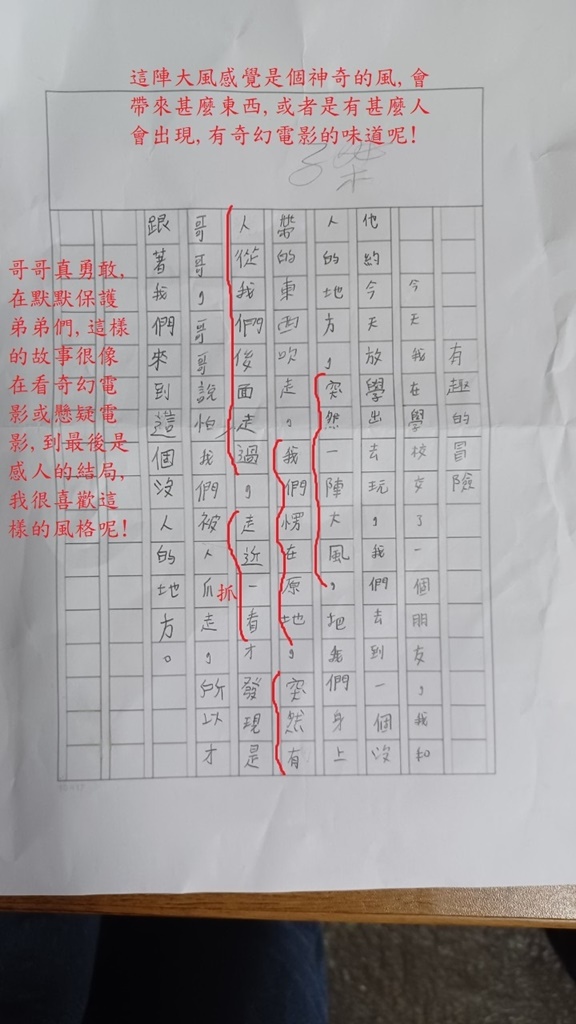 這陣大風感覺是個神奇的風,會
帶來甚麼東西,或者是有甚麼人
會出現,有奇幻電影的味道呢!
有趣的冒險
今天我在學校交了一個朋友,我和
他約今天放學出去玩,我們去到一個沒
人的地方,突然一陣大風,把我們身上
帶的東西吹走,我們愣在原地,突然有
人從我們後面走過,走近一看才發現是
哥哥,哥哥說怕我們被人爪走,所以才
抓
跟著我們來到這個沒人的地方。
哥哥真勇敢,
在默默保護
弟弟們,這樣
的故事很像
在看奇幻電
影或懸疑電
影,到最後是
感人的結局,
我很喜歡這
樣的風格呢!